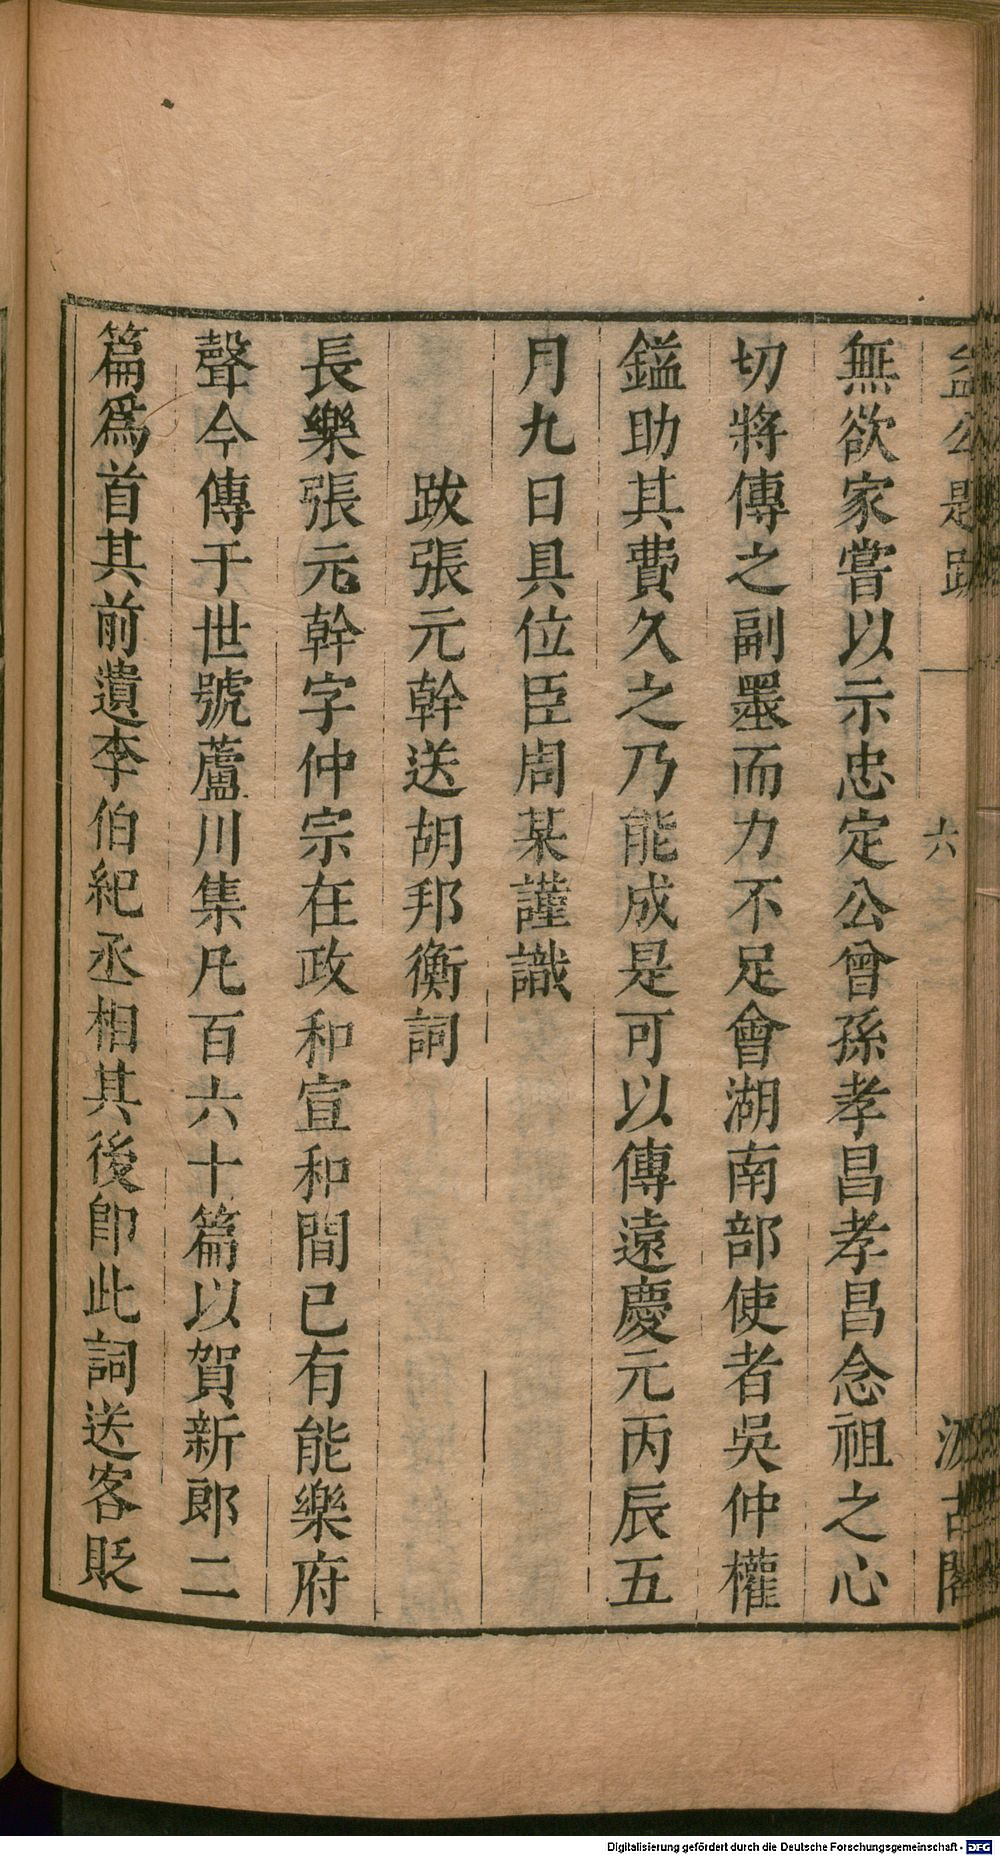 益公題跋 六 汲古閣
無欲家嘗以示忠定公曾孫孝昌孝昌念祖之心
切將傳之副墨而力不足會湖南部使者吳仲權
鎰助其費久之乃能成是可以傳遠慶元丙辰五
月九日具位臣周某謹識
跋張元幹送胡邦衡詞
長樂張元幹字仲宗在政和宣和間已有能樂府
聲今傳于世號蘆川集凡百六十篇以賀新郎二
篇爲首其前遺李伯紀丞相其後卽此詞送客貶
Digitalisierung gefördert durch die Deutsche Forschungsgemeinschaft - DFG